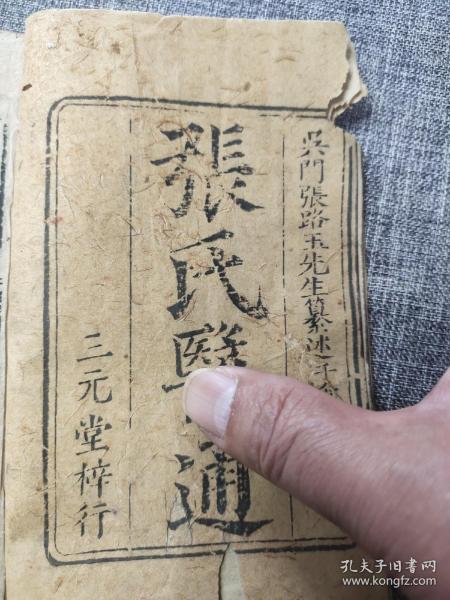 吳門張路玉先生纂述
張氏醫通
三元堂梓行
孔夫子旧书网
www.kongfz.com